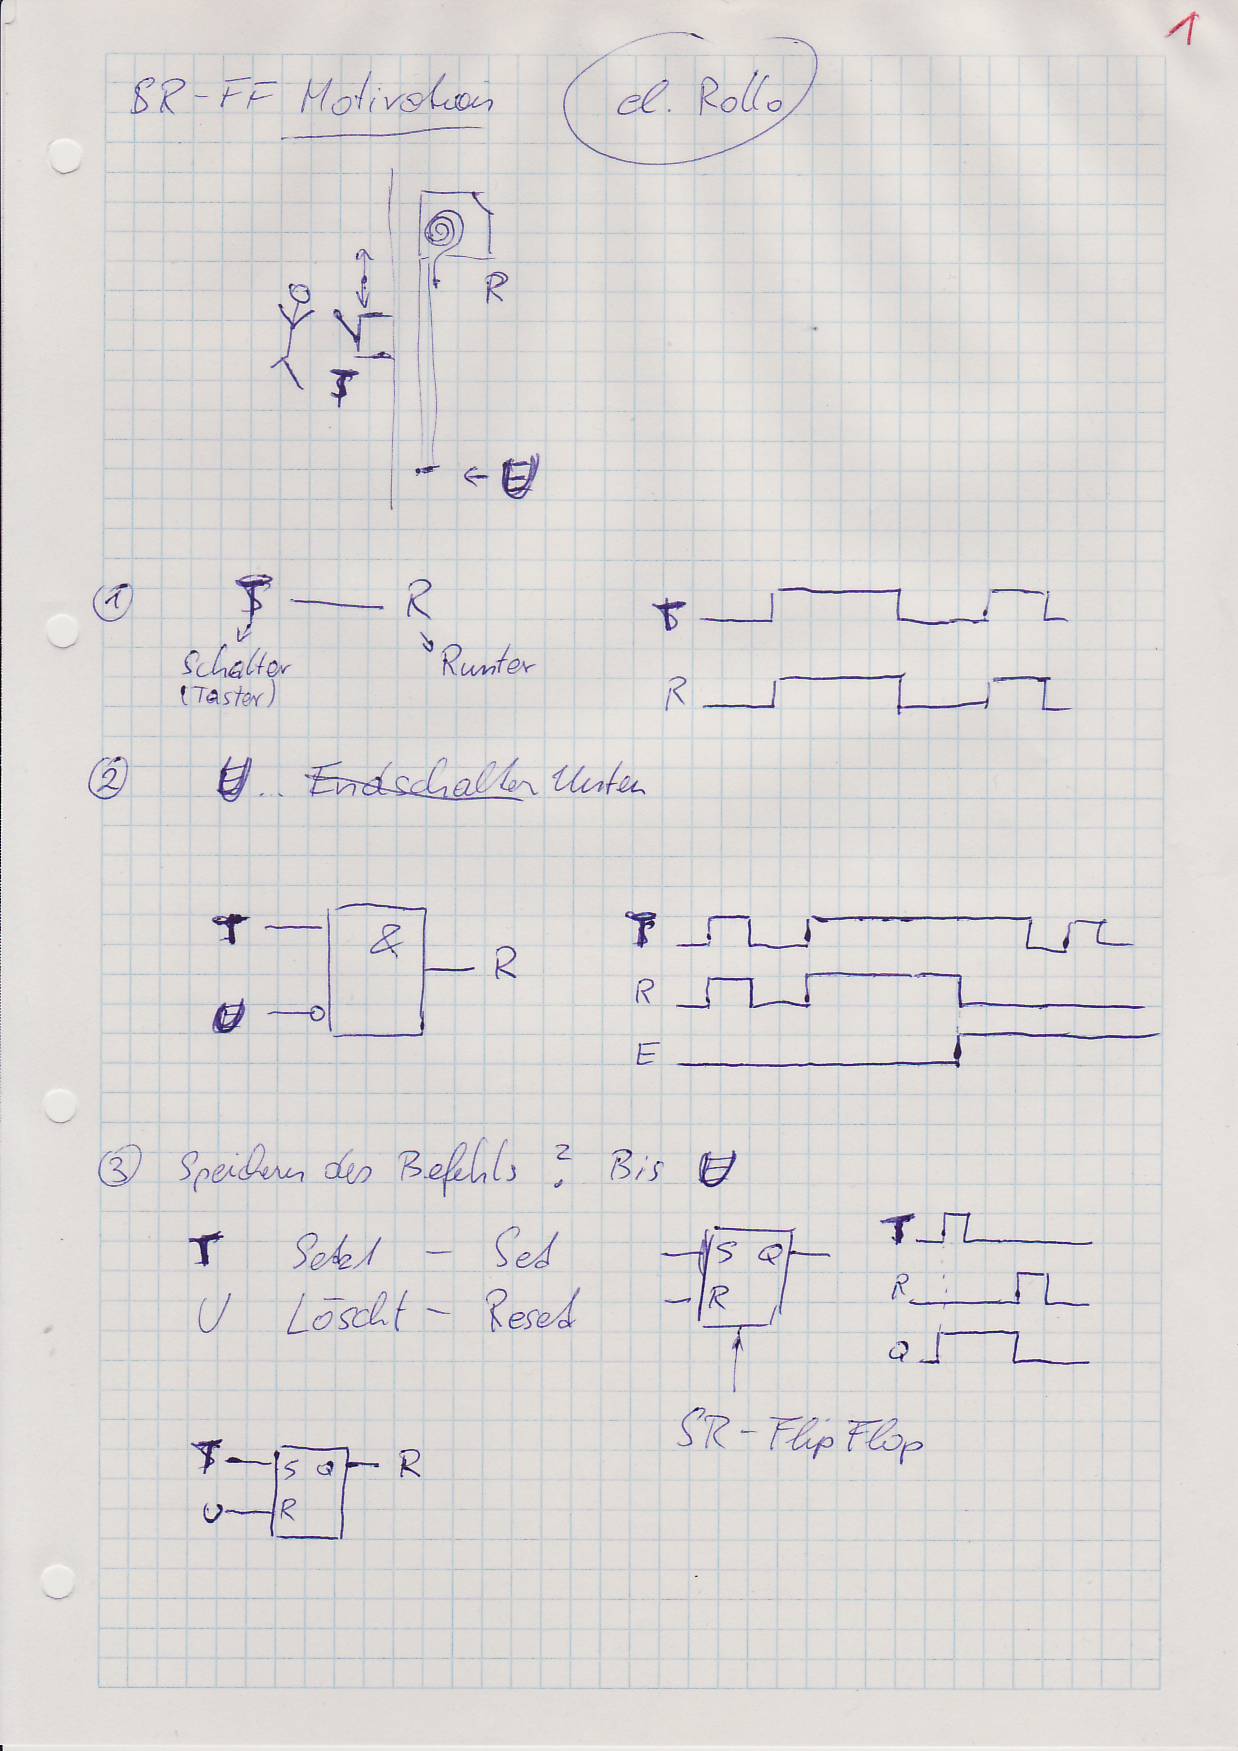 1
SR-FF Motivation
el. Rollo
R
T
← U
① T — R
Schalter
(Taster)
Runter
T
R
② U ... Endschalter Unten
T
&
R
U
T
R
E
③ Speichern des Befehls? Bis U
T Setzt - Set
U Löscht - Reset
S Q
R
T
R
Q
SR-FlipFlop
T S Q R
U R